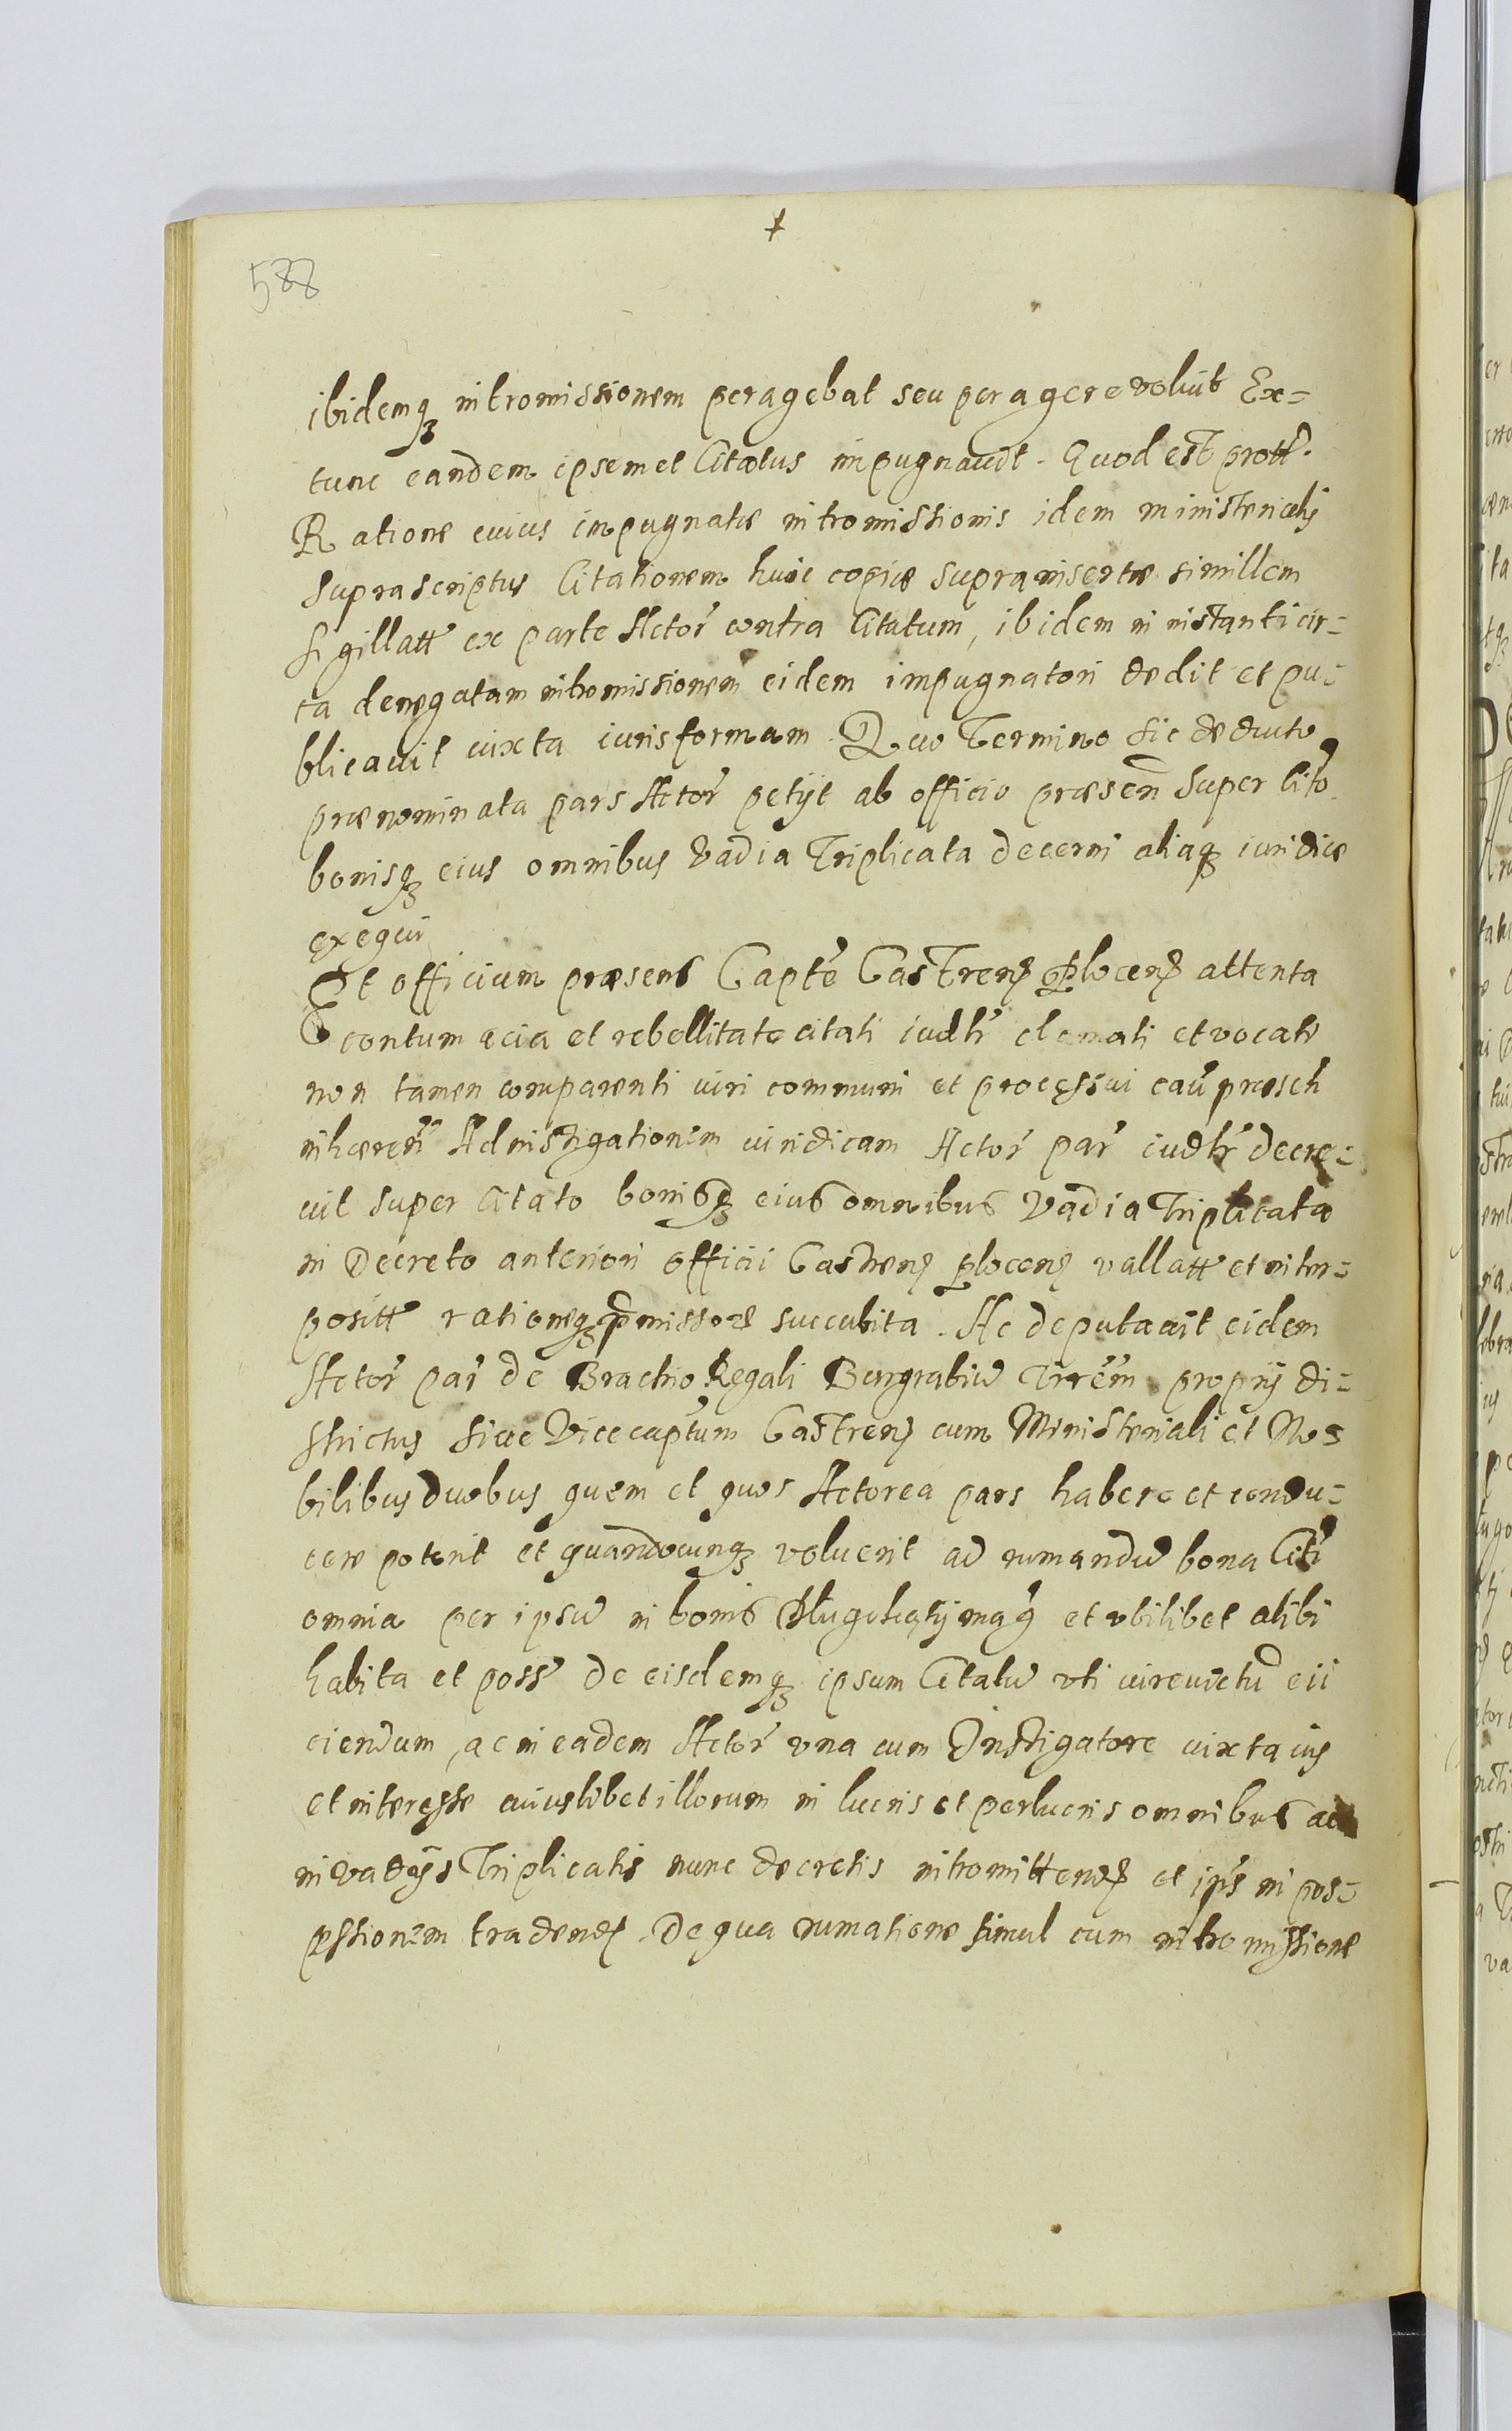 588
ibidemq intromissionem peragebat seu peragere voluit Ex=
tunc eandem ipsemet Citatus impugnavit. Quod est prott.
Ratione cuius impugnatæ intromissionis idem ministerialis
suprascriptus Citationem huic copiæ supra insertæ similem
sigillatt ex parte Actor contra Citatum, ibidem in instanti cir=
ca denegatam intromissionem eidem impugnatori dedit et pu=
blicavit iuxta iuris formam. Quo Termino sic deducto
prænominata pars Actor petijt ab officio præsen super Cito
bonisq eius omnibus Vadia Triplicata decerni aliaq iuridice
exequi
Et officium præsens Capte Castren Plocen attenta
contumacia et rebellitate citati iudtr clamati et vocati
non tamen comparenti iuri communi et processui cau præsen
inhæren Ad instigationem iuridicam Actor par iudtr decre=
vit super Citato bonisq eius omnibus Vadia Triplicata
in Decreto anteriori officii Castren plocen vallatt et inter=
positt rationeq pmissor succubita. Ac deputavit eidem
Actor par de Brachio Regali Burgrabiu Trrem proprij di=
strictus sive Vicecaptum Castren cum Ministeriali et No=
bilibus duobus quem et quos Actorea pars habere et condu=
cere poterit et quandocunq voluerit ad rumandu bona Citi
omnia per ipsu in bonis et ubilibet alibi
habita et poss de eisdemq ipsum Citatu uti iurevictu eii
ciendum, ac in eadem Actor una cum Instigatore iuxta ius
et interesse cuiuslibet illorum in lucris et perlucris omnibus ac
in vadijs Triplicatis nunc decretis intromitten et ips in pos=
essionem traden. De qua rumatione simul cum intromissione